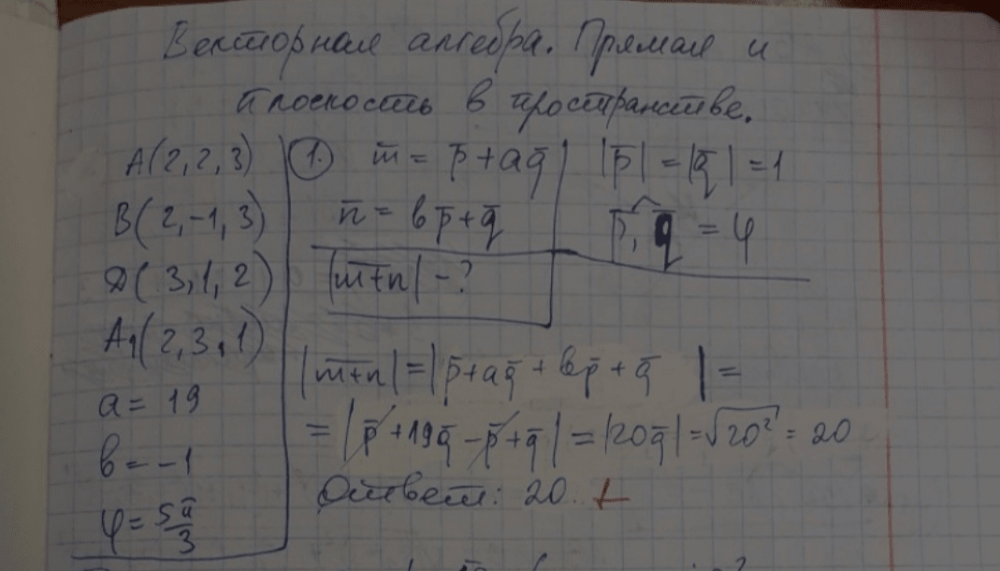 Векторная алгебра. Прямая и
плоскость в пространстве.
A(2,2,3)
B(2,-1,3)
D(3,1,2)
A₁(2,3,1)
a = 19
b = -1
φ = 5π/3
1. m̄ = p̄ + aq̄
n̄ = bp̄ + q̄
|m̄+n̄| - ?
|p̄| = |q̄| = 1
p̄, q̄ = φ
|m̄+n̄| = |p̄ + aq̄ + bp̄ + q̄| =
= |p̄ + 19q̄ - p̄ + q̄| = |20q̄| = √20² = 20
Ответ: 20. +